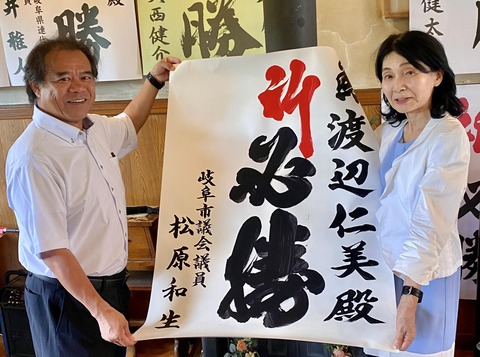 渡辺仁美殿
祈
必勝
岐阜市議会議員
松原和生
勝
岐阜県連
西健介
勝
井雅人
健太
祈